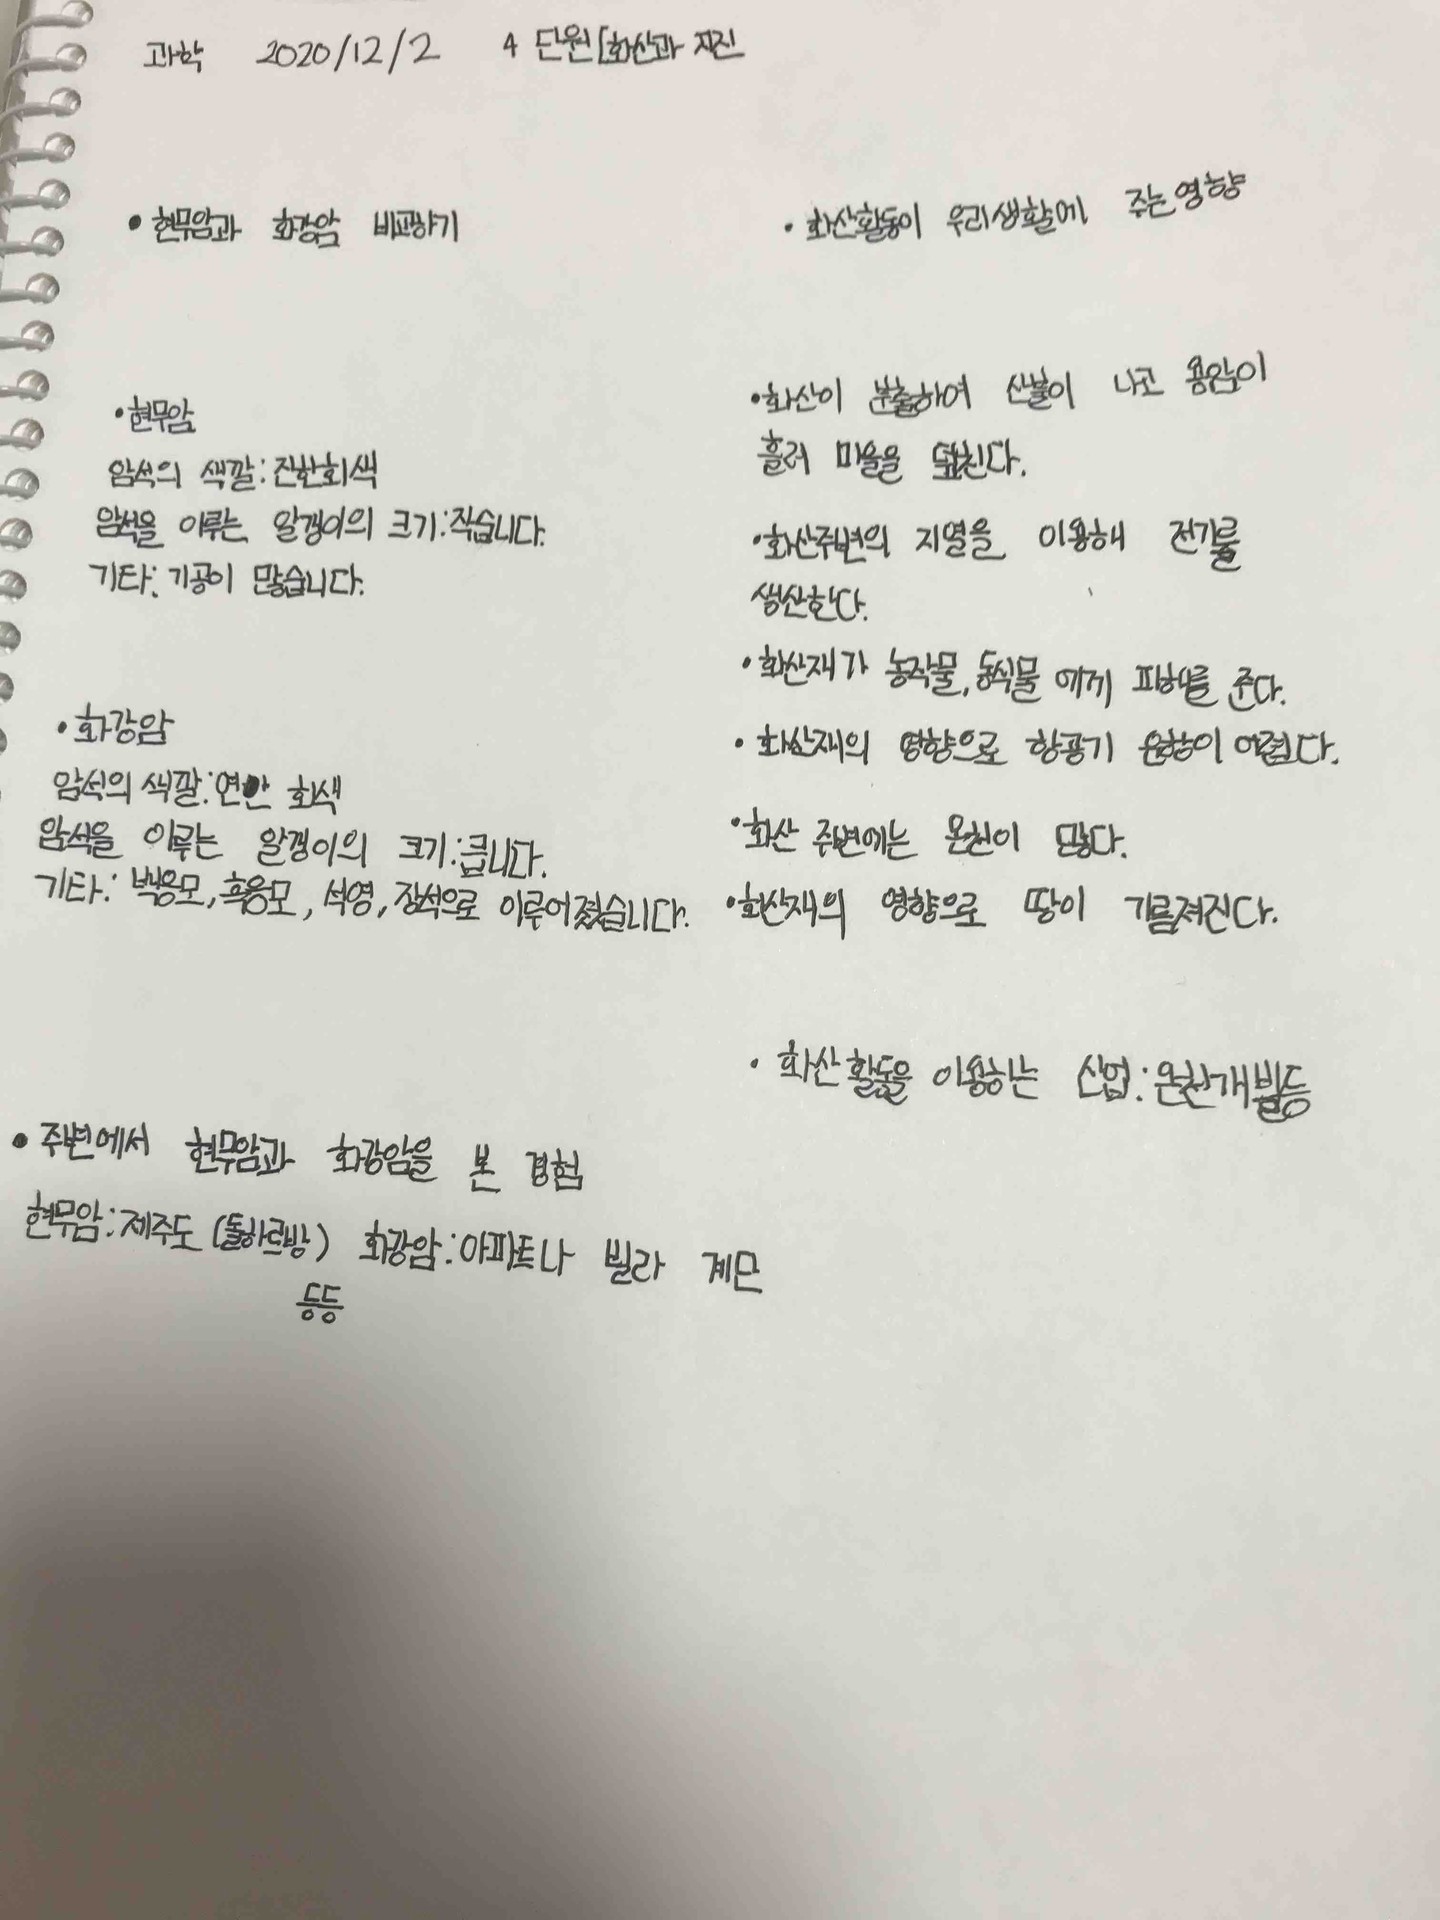 과학 2020/12/2 4 단원[화산과 지진
• 현무암과 화강암 비교하기
• 현무암
암석의 색깔:진한회색
암석을 이루는 알갱이의 크기:작습니다.
기타: 기공이 많습니다.
• 화강암
암석의 색깔:연한 회색
암석을 이루는 알갱이의 크기:큽니다.
기타: 백운모, 흑운모, 석영, 장석으로 이루어졌습니다.
• 주변에서 현무암과 화강암을 본 경험
현무암:제주도 (돌하르방) 화강암:아파트나 빌라 계단
등등
• 화산활동이 우리생활에 주는영향
•화산이 분출하여 산불이 나고 용암이
흘러 마을을 덮친다.
•화산주변의 지열을 이용해 전기를
생산한다.
•화산재가 농작물,동식물 에게 피해를 준다.
• 화산재의 영향으로 항공기 운항이 어렵다.
•화산 주변에는 온천이 많다.
•화산재의 영향으로 땅이 기름져진다.
• 화산 활동을 이용하는 산업:온천개발등